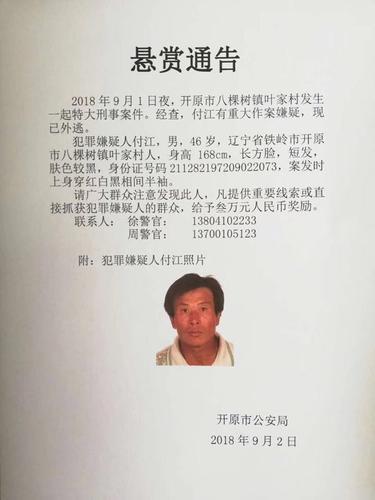 悬赏通告
2018年9月1日夜，开原市八棵树镇叶家村发生
一起特大刑事案件。经查，付江有重大作案嫌疑，现
已外逃。
犯罪嫌疑人付江，男，46岁，辽宁省铁岭市开原
市八棵树镇叶家村人，身高168cm，长方脸，短发，
肤色较黑，身份证号码211282197209022073，案发时
上身穿红白黑相间半袖。
请广大群众注意发现此人，凡提供重要线索或直
接抓获犯罪嫌疑人的群众，给予叁万元人民币奖励。
联系人： 徐警官： 13804102233
周警官： 13700105123
附：犯罪嫌疑人付江照片
开原市公安局
2018年9月2日